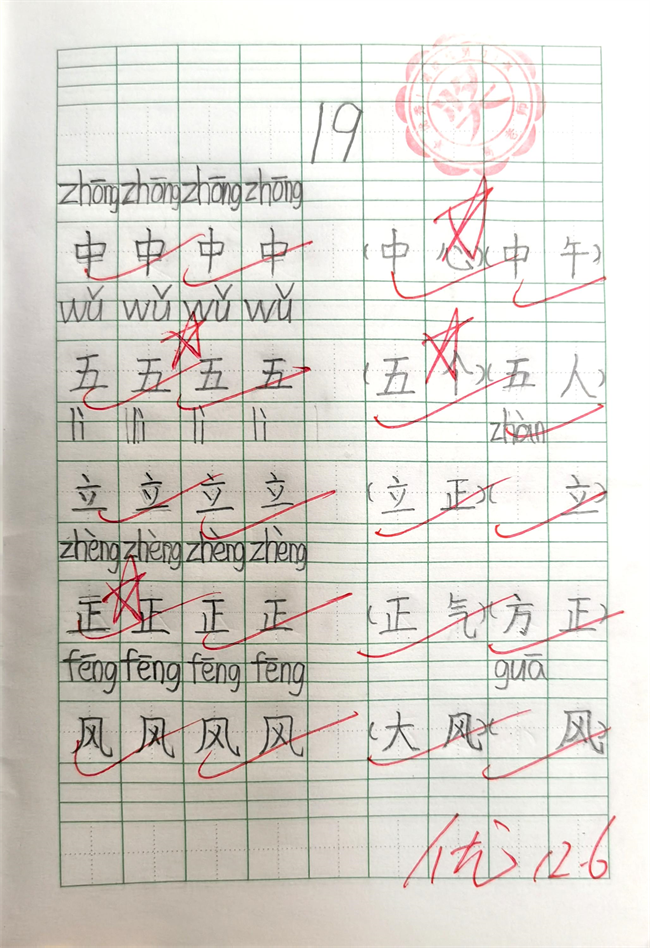 19
zhōng zhōng zhōng zhōng
中 中 中 中 (中 心)(中 午)
wǔ wǔ wǔ wǔ
五 五 五 五 (五 个)(五 人)
lì lì lì lì zhàn
立 立 立 立 (立 正)( 立)
zhèng zhèng zhèng zhèng
正 正 正 正 (正 气)(方 正)
fēng fēng fēng fēng guā
风 风 风 风 (大 风)( 风)
优 12.6